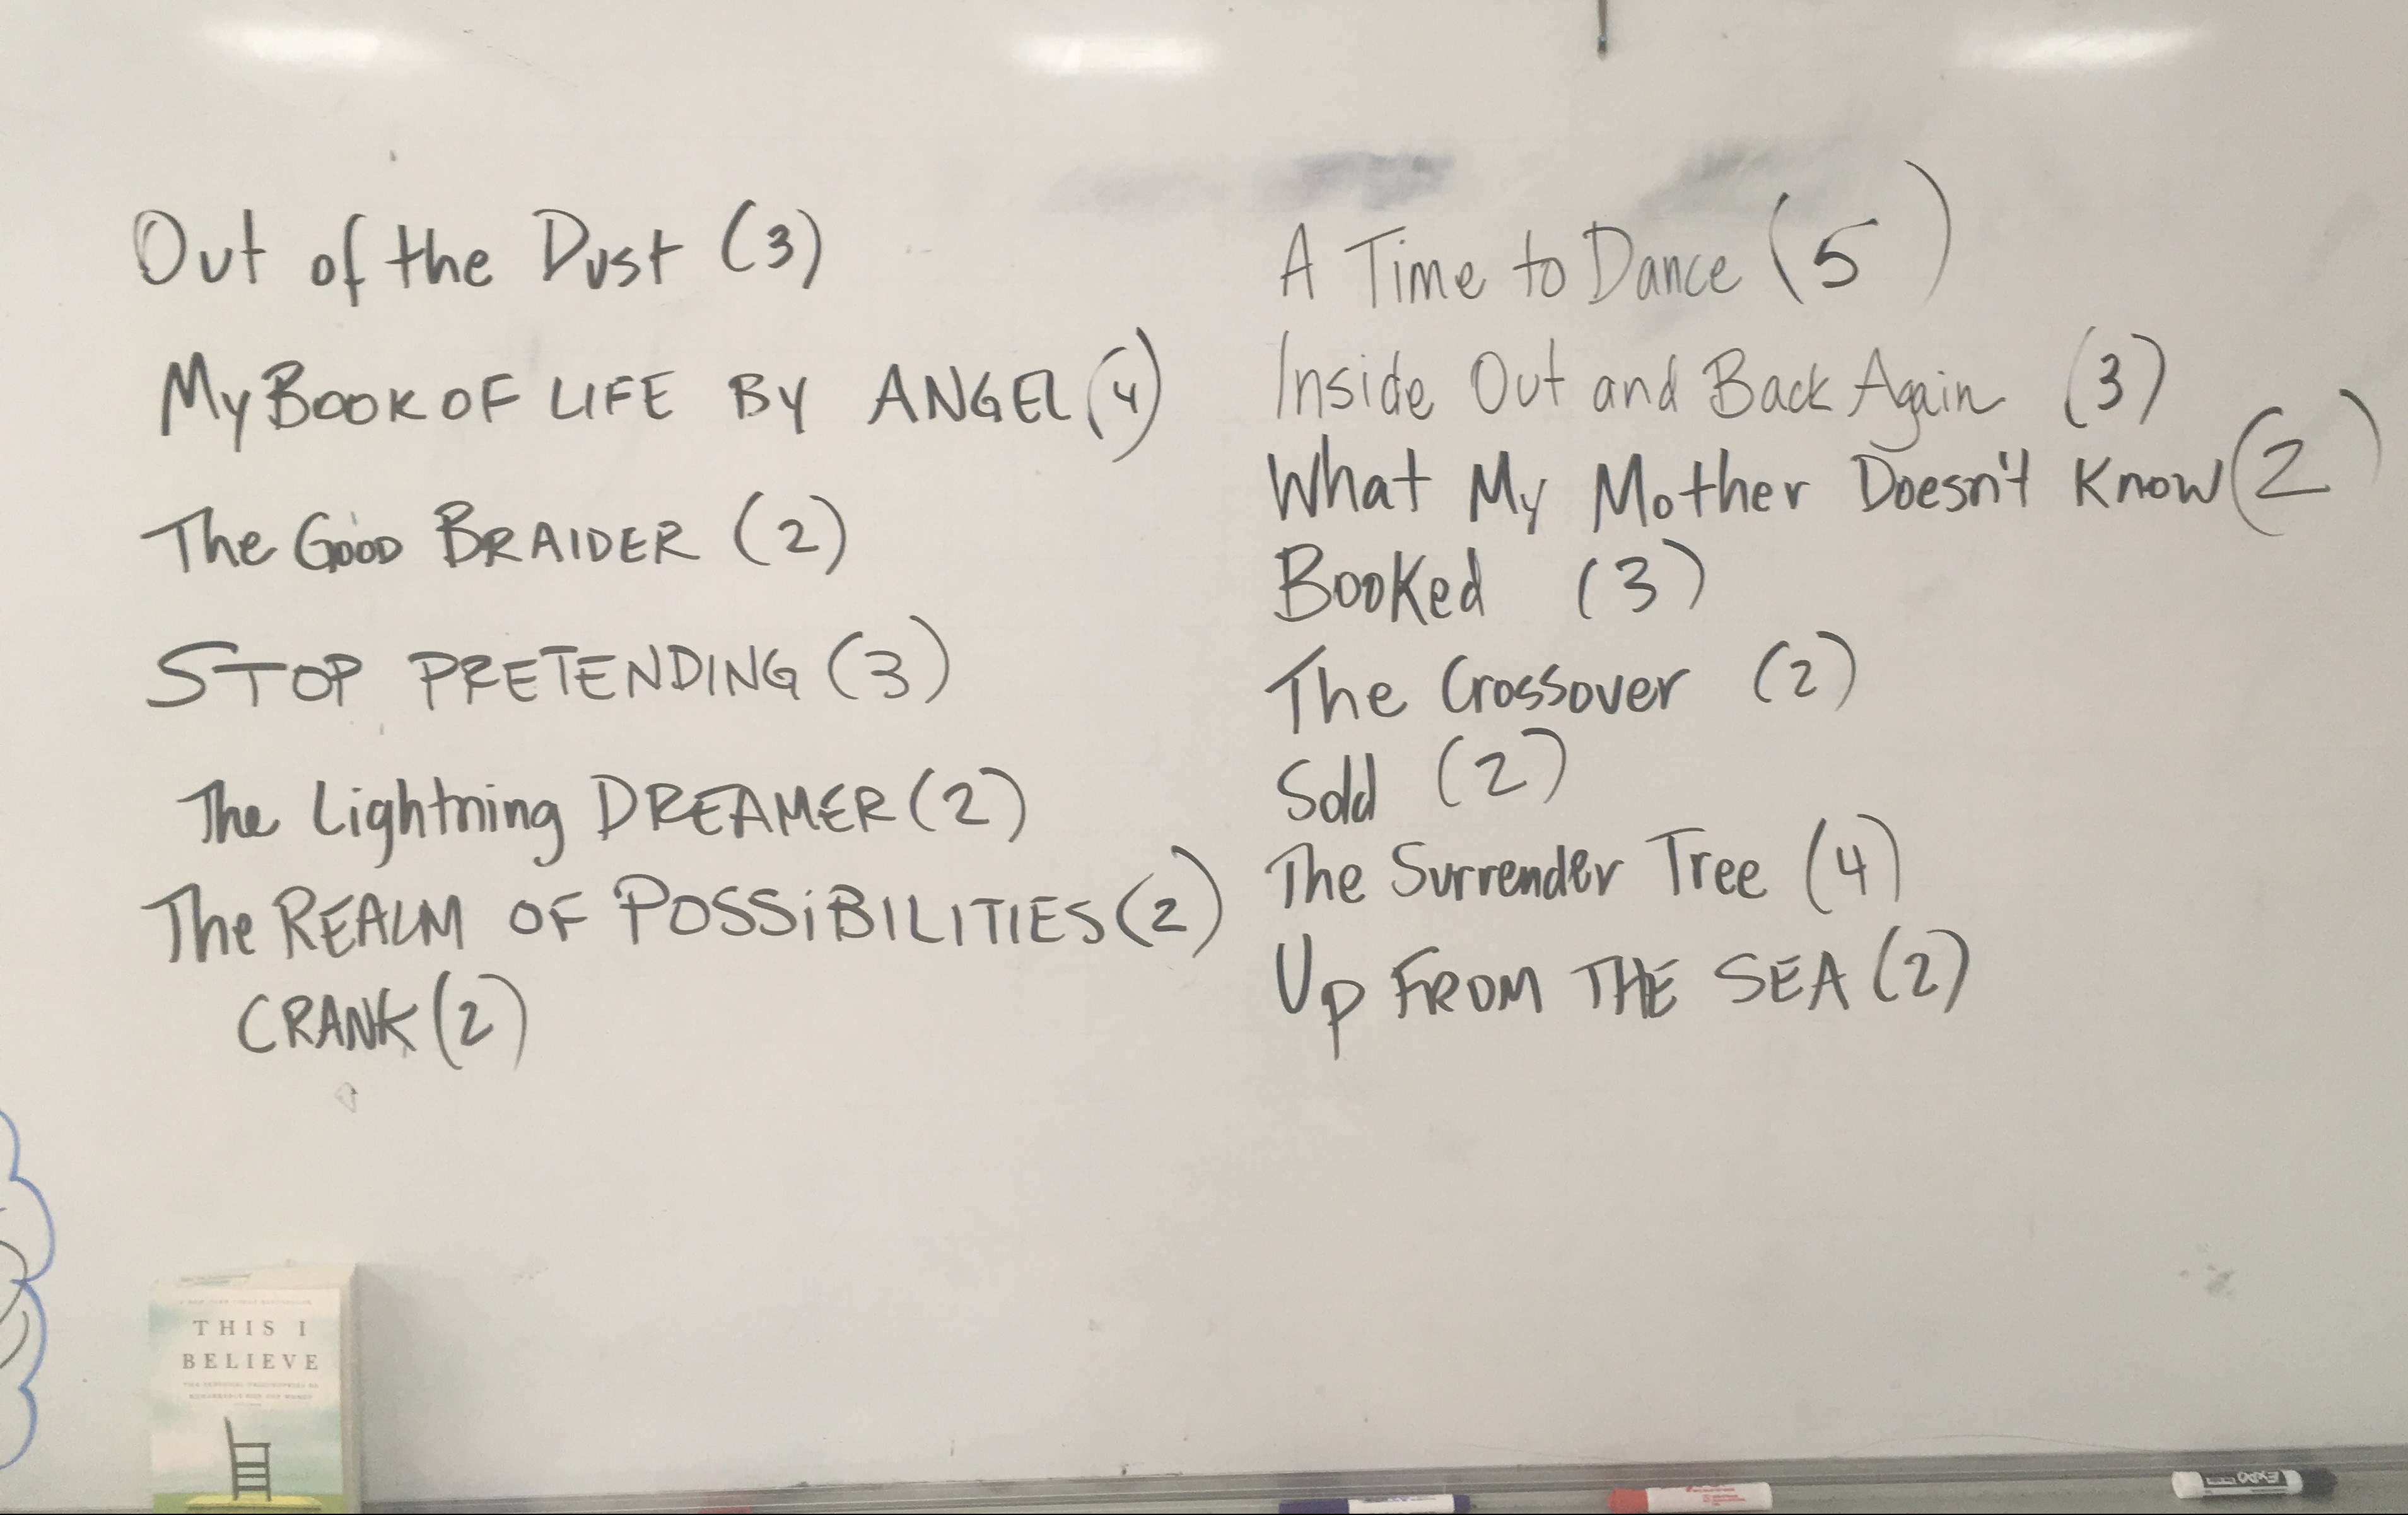 Out of the Dust (3)
My BOOK OF LIFE BY ANGEL (4)
The GOOD BRAIDER (2)
STOP PRETENDING (3)
The Lightning DREAMER (2)
The REALM OF POSSiBILITIES (2)
CRANK (2)
A Time to Dance (5)
Inside Out and Back Again (3)
What My Mother Doesn't Know (2)
Booked (3)
The Crossover (2)
Sold (2)
The Surrender Tree (4)
Up FROM THE SEA (2)
THIS I
BELIEVE
EXPO